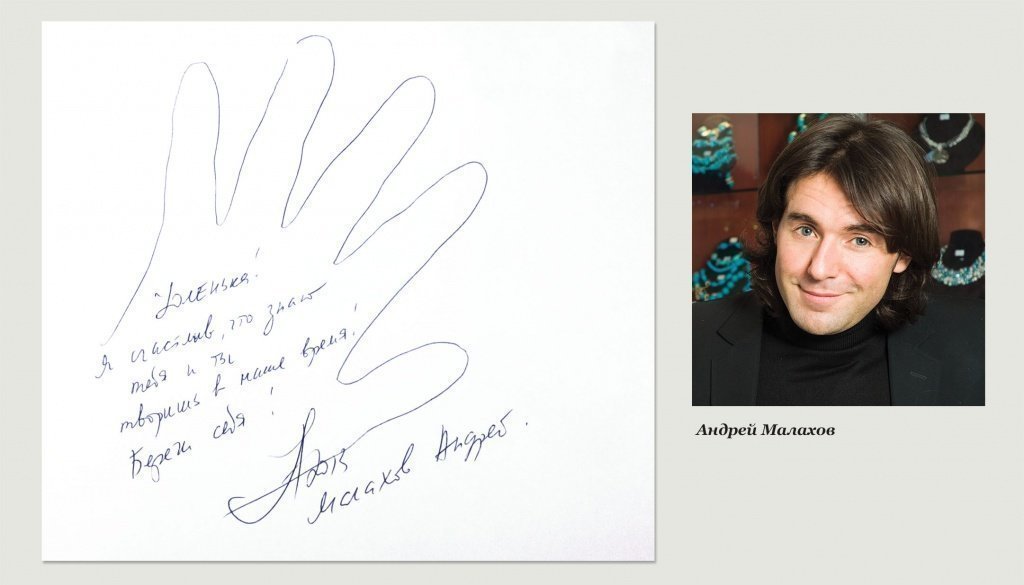 Юленька!
Я счастлив, что знаю
тебя и ты
творишь в наше время!
Береги себя!
Малахов Андрей.
Андрей Малахов